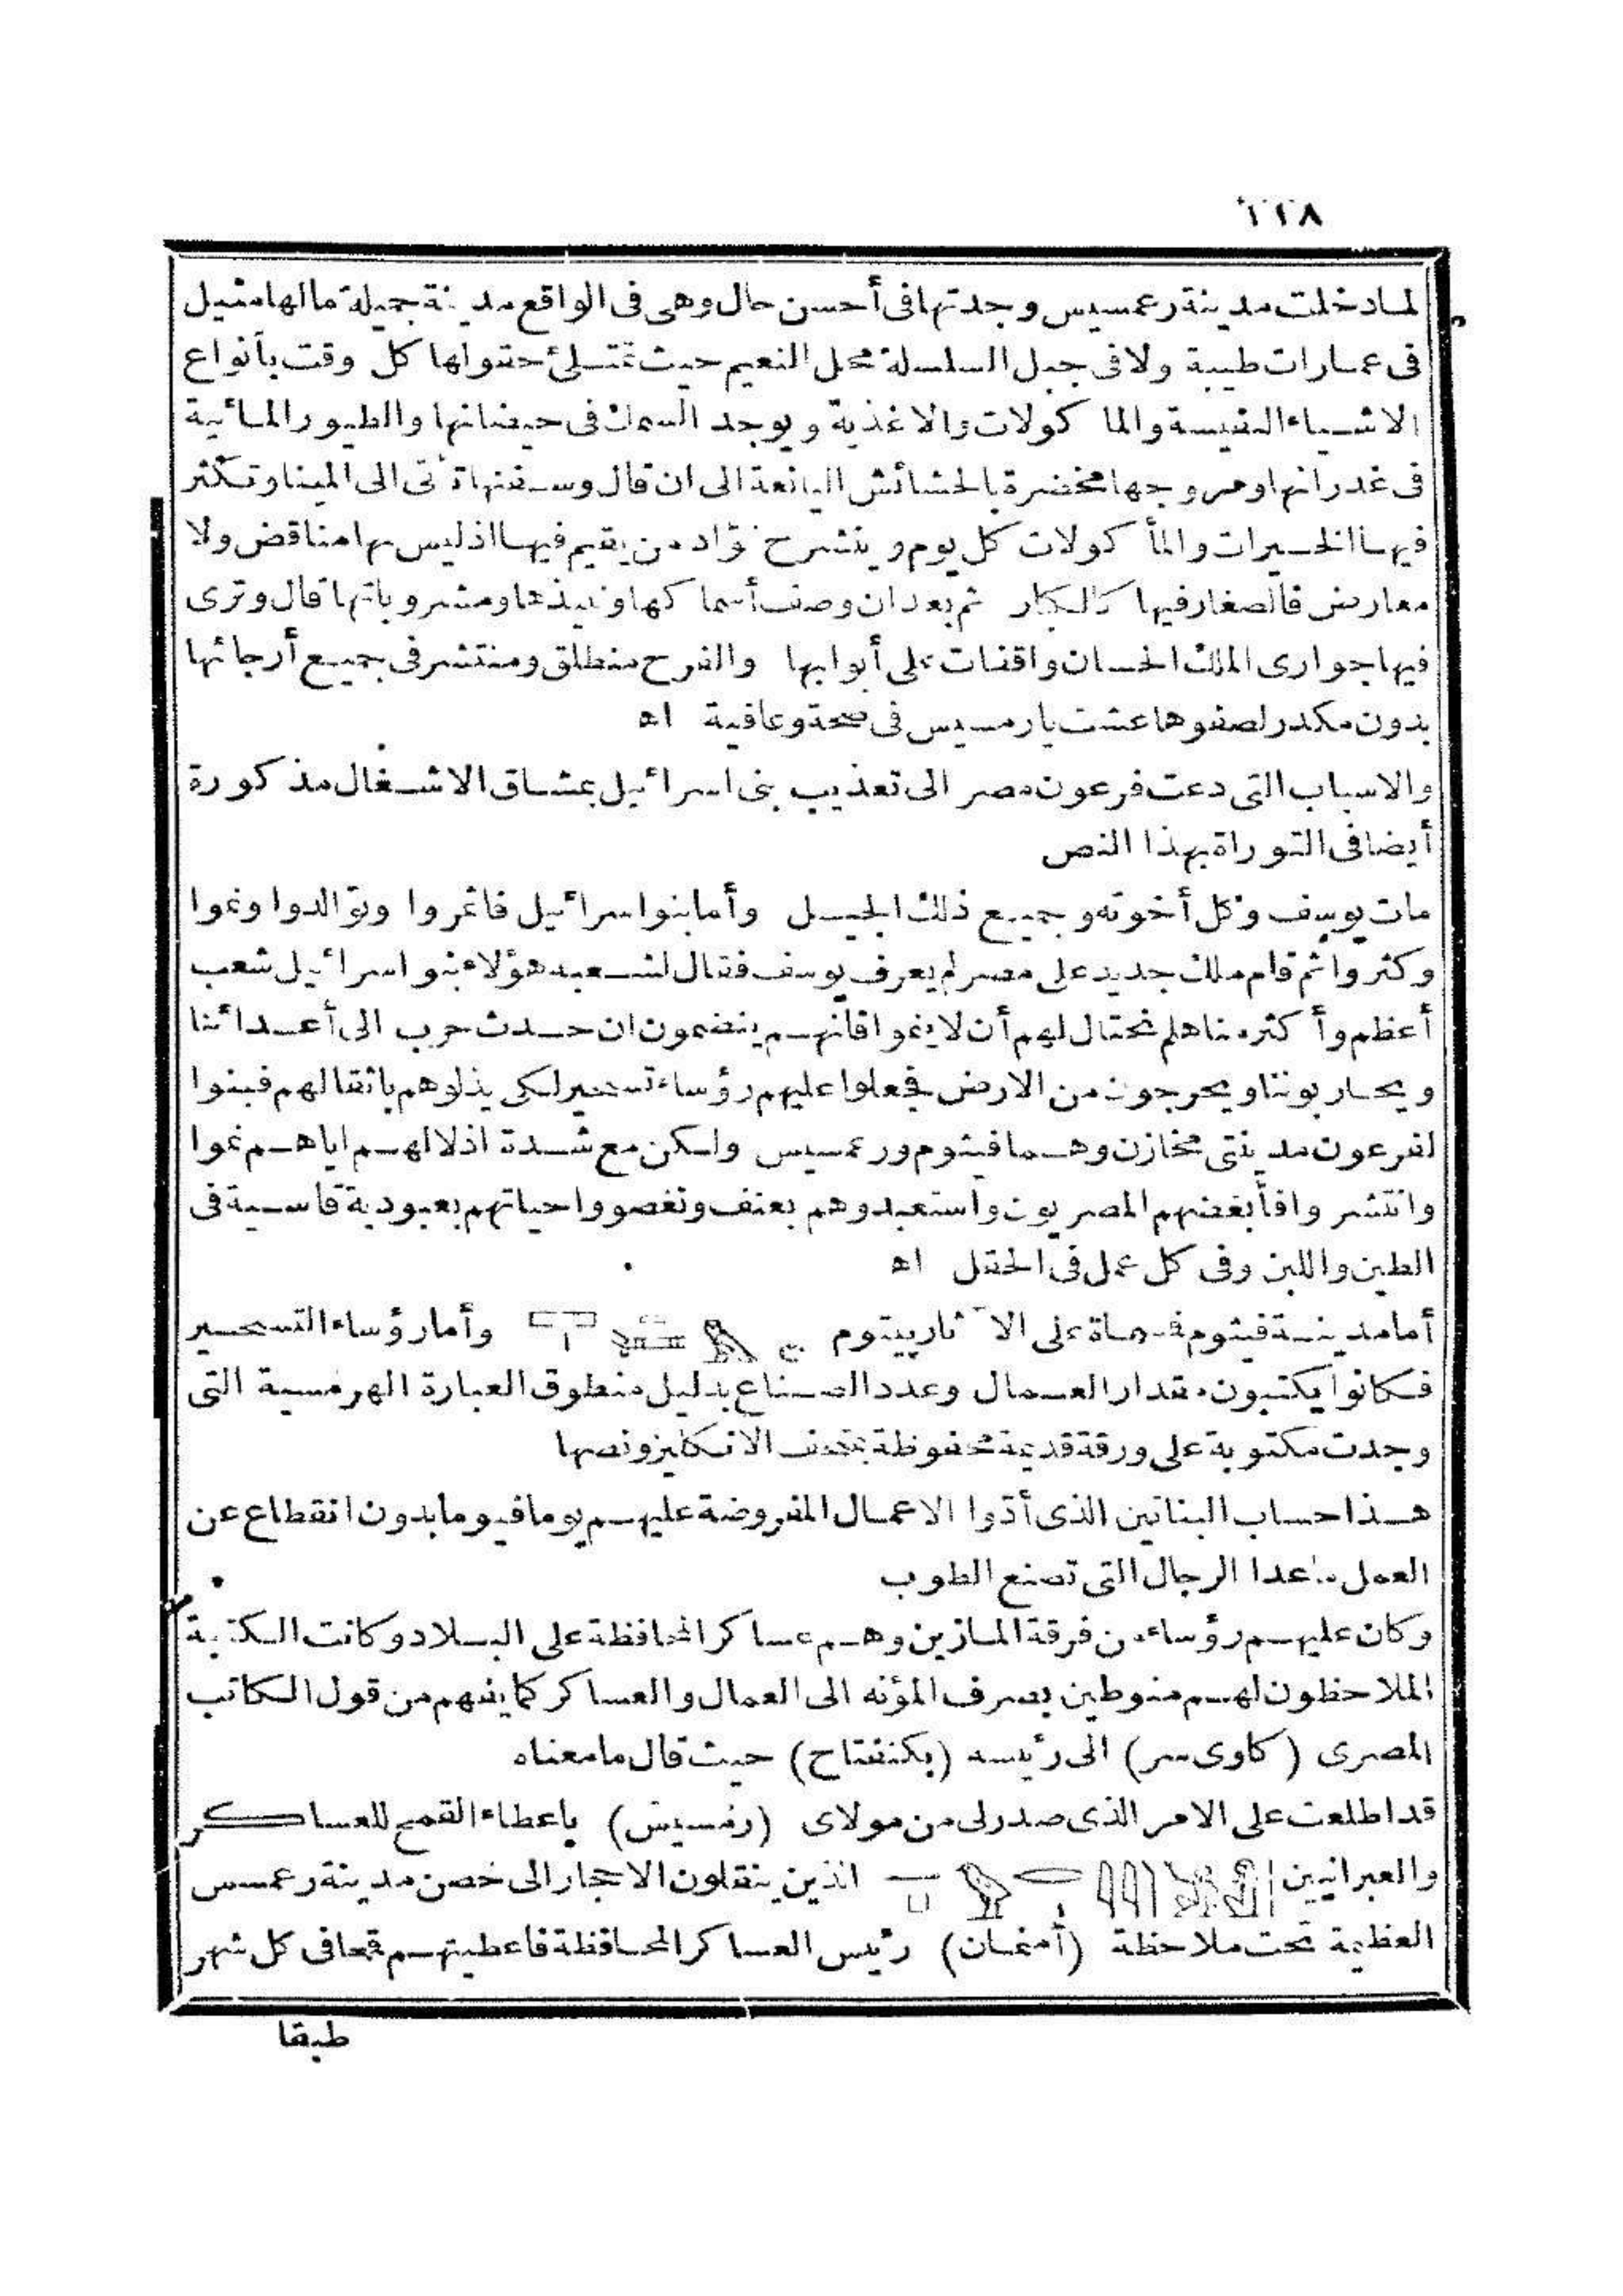 ٢٢٨
لما دخلت مدينة رعمسيس وجدتها فى أحسن حال وهى فى الواقع مدينة جميلة ما الها مثيل
فى عمارات طيبة ولا فى جبل السلسلة محل النعيم حيث تمتلئ حقولها كل وقت بأنواع
الاشياء النفيسة والما كولات والاغذية ويوجد السمك فى حيضانها والطيور المائية
فى غدرانها ومروجها مخضرة بالحشائش اليانعة الى ان قال وسفنها تأتى الى المينا وتكثر
فيها الخيرات والمأ كولات كل يوم وينشرح فؤاد من يقيم فيها اذ ليس بها مناقض ولا
معارض فالصغار فيها كالكبار ثم بعد ان وصف أسما كها ونبيذها ومشروباتها قال وترى
فيها جوارى الملك الحسان واقفات على أبوابها والفرح منطلق ومنتشر فى جميع أرجائها
بدون مكدر لصفوها عشت يا رمسيس فى صحة وعافية اه
والاسباب التى دعت فرعون مصر الى تعذيب بنى اسرائيل بمشاق الاشغال مذ كورة
أيضا فى التوراة بهذا النص
مات يوسف وكل أخوته وجميع ذلك الجيل وأما بنو اسرائيل فاثمروا وتوالدوا ونموا
وكثروا ثم قام ملك جديد على مصر لم يعرف يوسف فقال لشعبه هؤلاء بنو اسرائيل شعب
أعظم وأ كثر منا هلم نحتال لهم أن لا ينموا فانهم ينضمون ان حدث حرب الى أعدائنا
ويحاربوننا ويخرجون من الارض فجعلوا عليهم رؤساء تسخير لكى يذلوهم باثقالهم فبنوا
لفرعون مدينتى مخازن وهما فيثوم ورعمسيس ولكن مع شدة اذلالهم اياهم نموا
وانتشروا فأبغضهم المصريون واستعبدوهم بعنف ونغصوا حياتهم بعبودية قاسية فى
الطين واللبن وفى كل عمل فى الحقل اه
أما مدينة فيثوم فمسماة على الآثار پيتوم وأما رؤساء التسخير
فكانوا يكتبون مقدار العمال وعدد الصناع بدليل منطوق العبارة الهرمسية التى
وجدت مكتوبة على ورقة قديمة محفوظة بتحف الانكليز ونصها
هذا حساب البنائين الذى أدّوا الاعمال المفروضة عليهم يوما فيوما بدون انقطاع عن
العمل ما عدا الرجال التى تصنع الطوب
وكان عليهم رؤساء من فرقة المازين وهم عسا كر المحافظة على البلاد وكانت الكتبة
الملاحظون لهم منوطين بصرف المؤنه الى العمال والعسا كر كما يفهم من قول الكاتب
المصرى (كاوى سر) الى رئيسه (بكنفتاح) حيث قال ما معناه
قد اطلعت على الامر الذى صدر لى من مولاى (رمسيس) باعطاء القمح للعساكر
والعبرانيين الذين ينقلون الاحجار الى حصن مدينة رعمسس
العظيمة تحت ملاحظة (أمنمان) رئيس العسا كر المحافظة فاعطيتهم قمحا فى كل شهر
طبقا